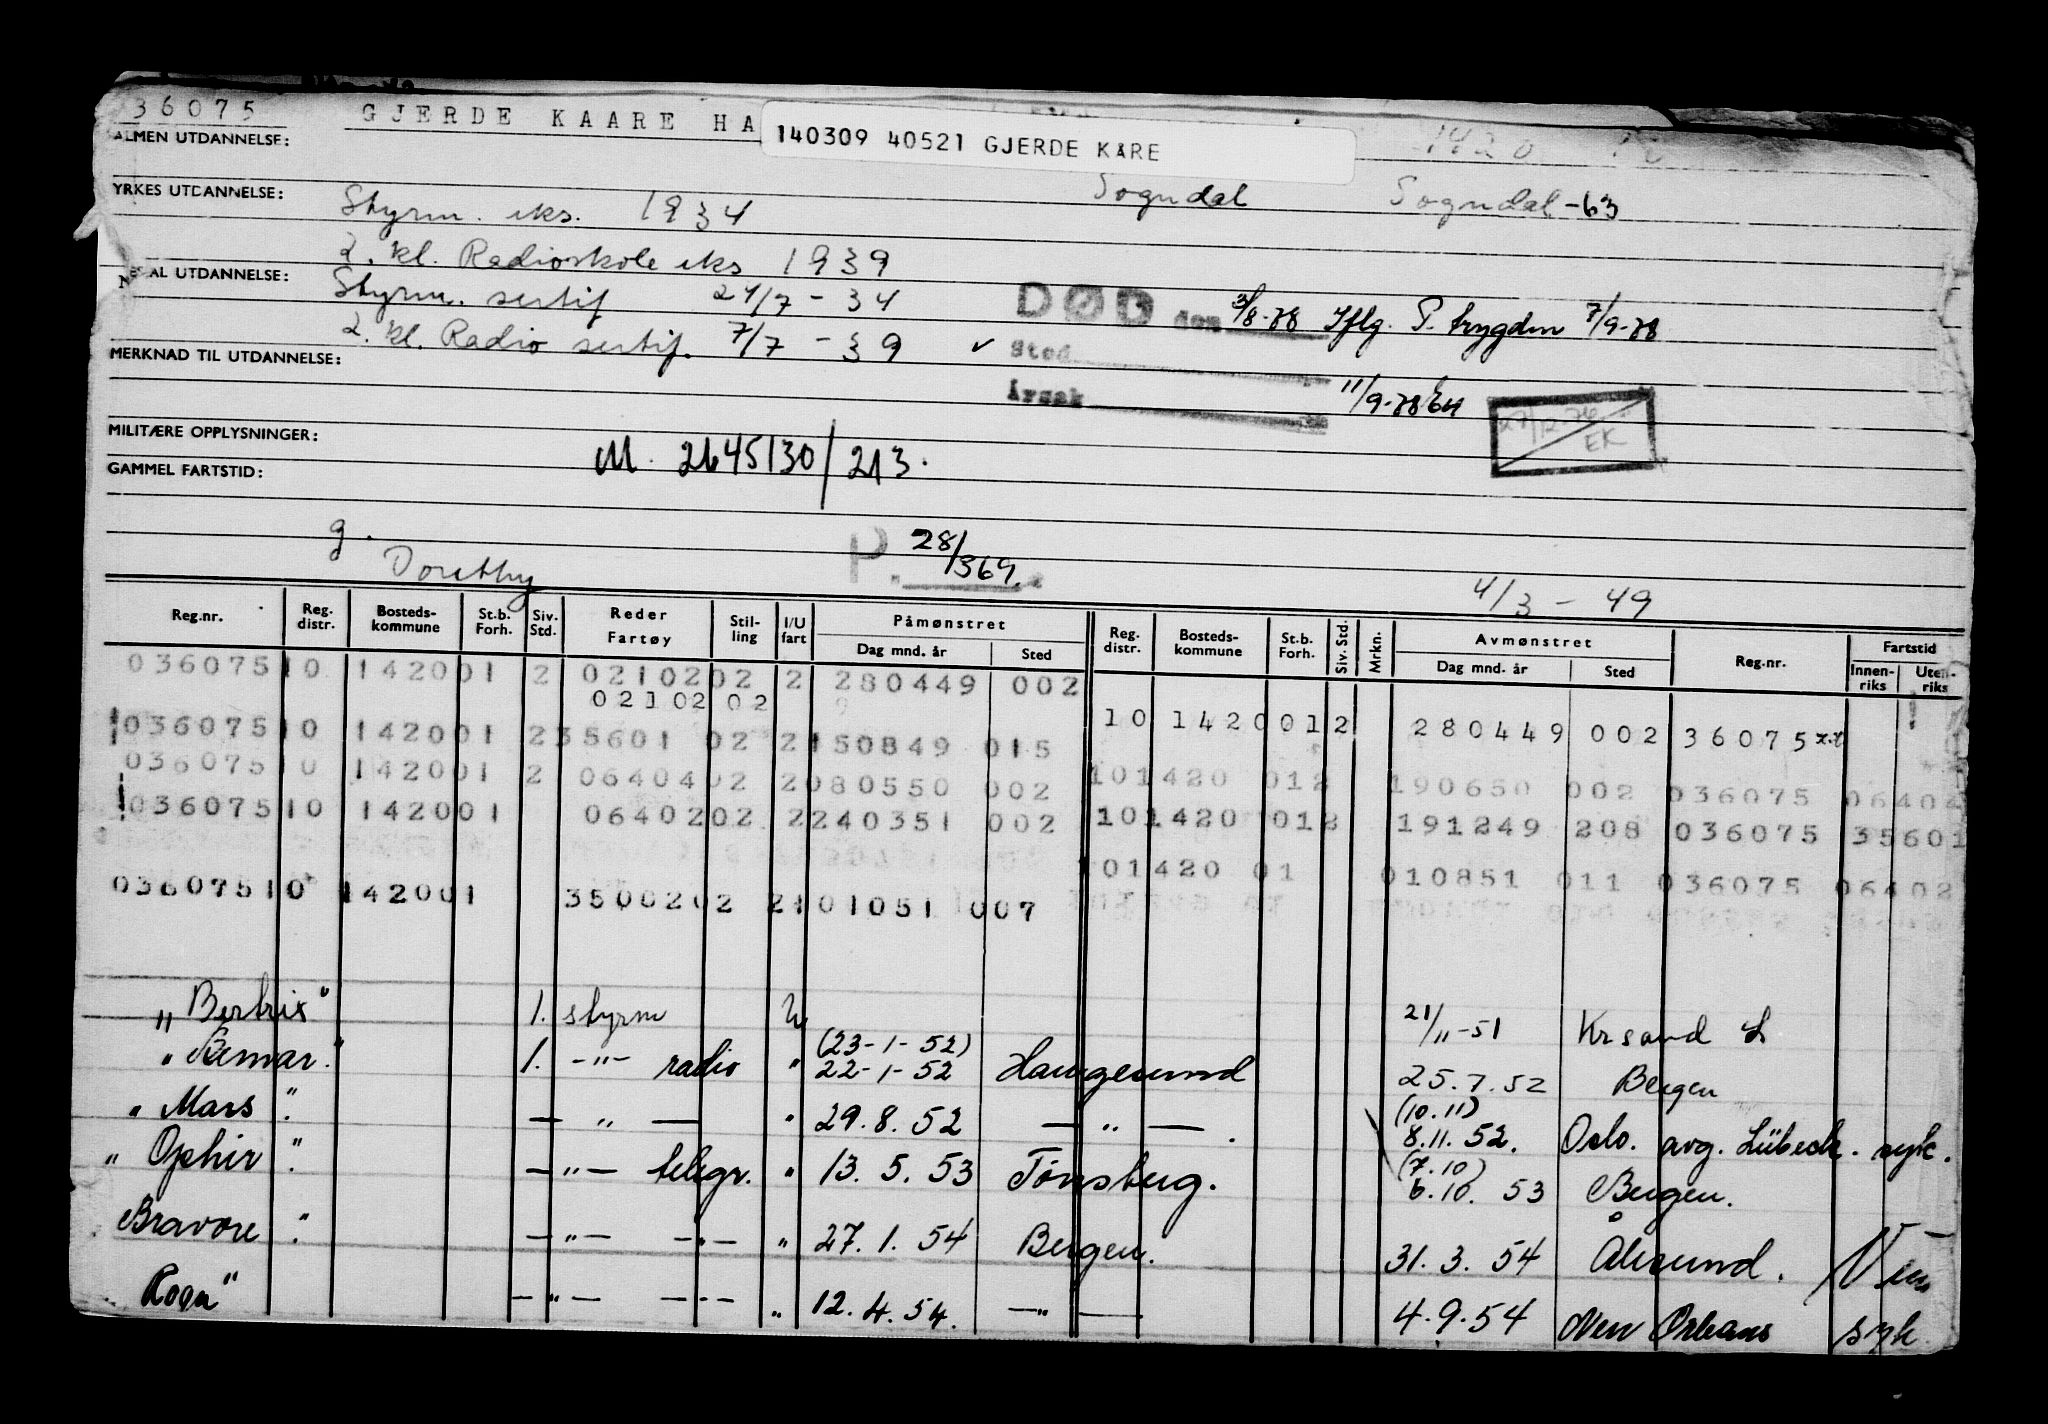 36075 GJERDE KAARE HA
140309 40521 GJERDE KÅRE
1420
ALMEN UTDANNELSE:
Sogndal Sogndal -63
YRKES UTDANNELSE: Styrm. eks. 1934
2. kl. Radioskole eks 1939
AL UTDANNELSE: Styrm. sertif 24/7 - 34
DØD den 3/8-78 Iflg. P. trygden 7/9-78
2. kl. Radio sertif. 7/7 - 39 ✓ Sted
MERKNAD TIL UTDANNELSE:
Årsak 11/9-78
27/12-76 EK
MILITÆRE OPPLYSNINGER:
M. 2645130/213.
GAMMEL FARTSTID:
g. P. 28/369.
Dorethy 4/3 - 49
Reg.nr. Reg. distr. Bosteds- kommune St.b. Forh. Siv. Std. Reder Fartøy Stil- ling I/U fart Påmønstret Dag mnd. år Sted Reg. distr. Bosteds- kommune St.b. Forh. Siv. Std. Mrkn. Avmønstret Dag mnd. år Sted Reg.nr. Fartstid Innen- riks Uten- riks
036075 10 1420 01 2 02102 02 2 280449 002
02102 02
10 1420 01 2 280449 002 36075
036075 10 1420 01 2 35601 02 2 150849 015
036075 10 1420 01 2 06404 02 2 080550 002
10 1420 01 2 190650 002 036075 06404
036075 10 1420 01 06402 02 2 240351 002
10 1420 01 2 191249 208 036075 35601
10 1420 01 010851 011 036075 06402
036075 10 1420 01 35002 02 2 101051 007
"Bertrix" 1. styrm U 21/11-51 Krsand S
1. -"- radio " (23-1-52) 22-1-52 Haugesund 25.7.52 Bergen
" Mars " — " — " 29.8.52 — " — . (10.11) 8.11.52. Oslo. avg. Lübeck. syk.
" Ophir " -"- telegr. " 13.5.53 Tønsberg. (7.10) 6.10.53 Bergen.
Bravore " -"- -"- " 27.1.54 Bergen. 31.3.54 Ålesund.
-"- -"- " 12.4.54. -"- 4.9.54 New Orleans syk